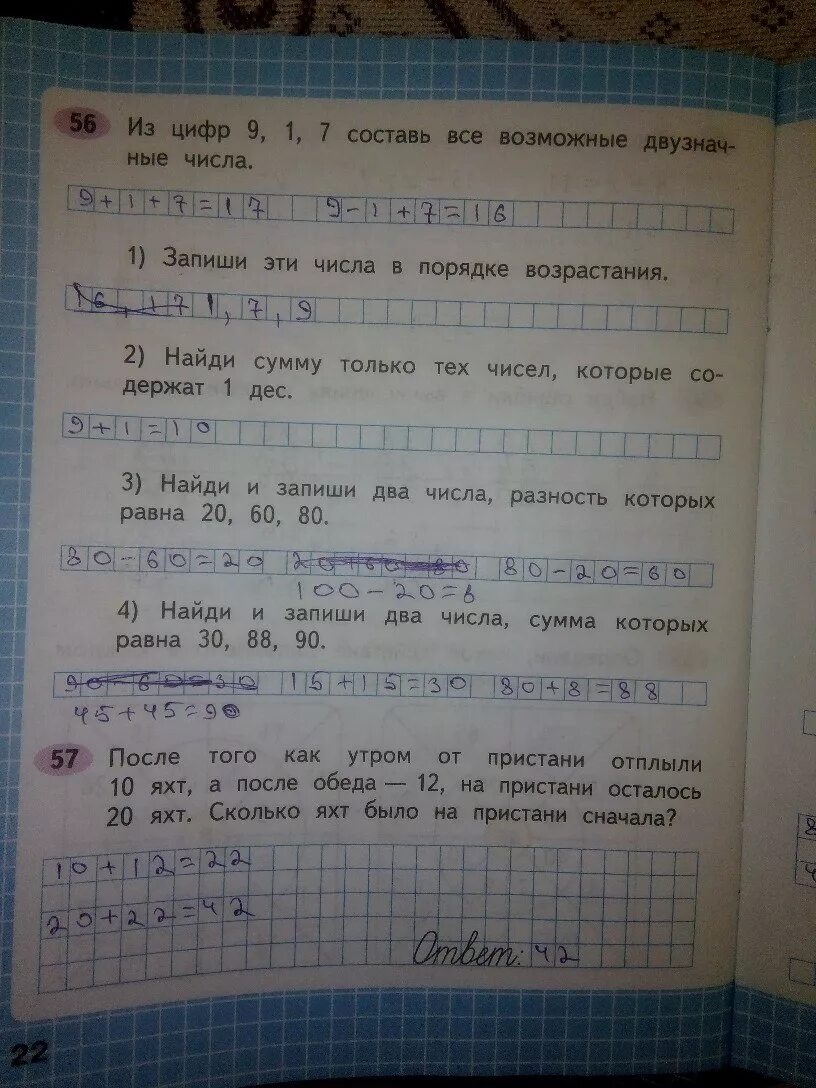 56 Из цифр 9, 1, 7 составь все возможные двузнач-
ные числа.
9+1+7=17 9-1+7=16
1) Запиши эти числа в порядке возрастания.
16, 17 1, 7, 9
2) Найди сумму только тех чисел, которые со-
держат 1 дес.
9+1=10
3) Найди и запиши два числа, разность которых
равна 20, 60, 80.
80-60=20 80-20=60
100-20=8
4) Найди и запиши два числа, сумма которых
равна 30, 88, 90.
90-60=30 15+15=30 80+8=88
45+45=90
57 После того как утром от пристани отплыли
10 яхт, а после обеда — 12, на пристани осталось
20 яхт. Сколько яхт было на пристани сначала?
10+12=22
20+22=42
Ответ: 42
22